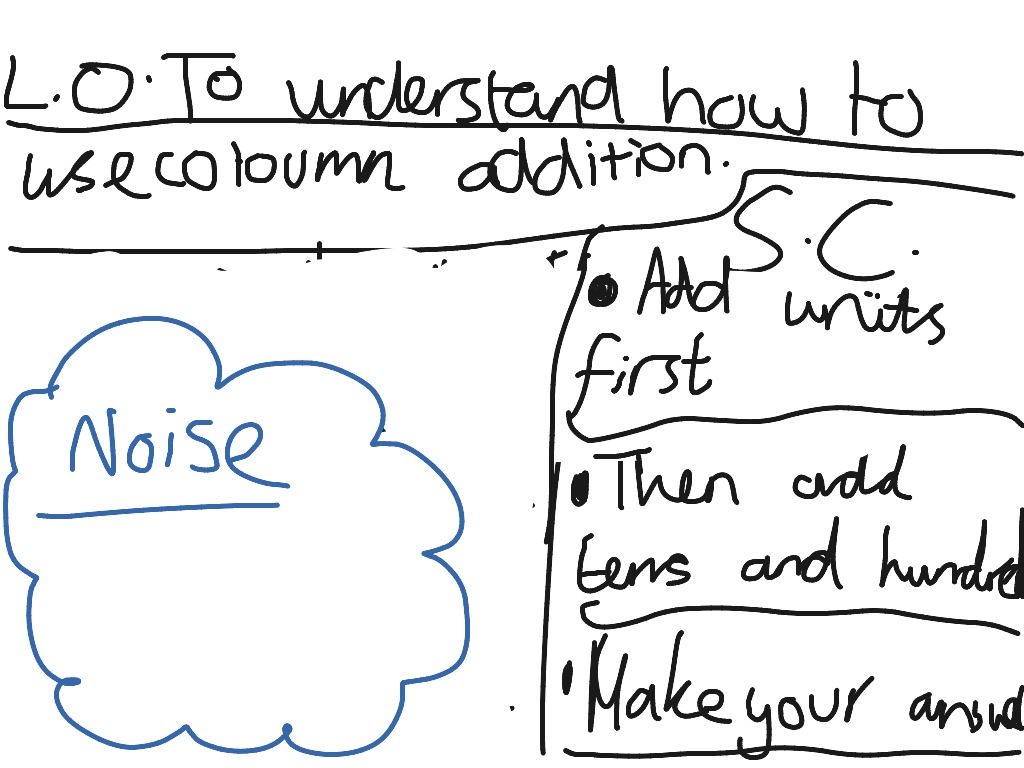 L.O. To understand how to
use coloumn addition.
S.C.
• Add units
first
• Then add
tens and hundred
• Make your
Noise